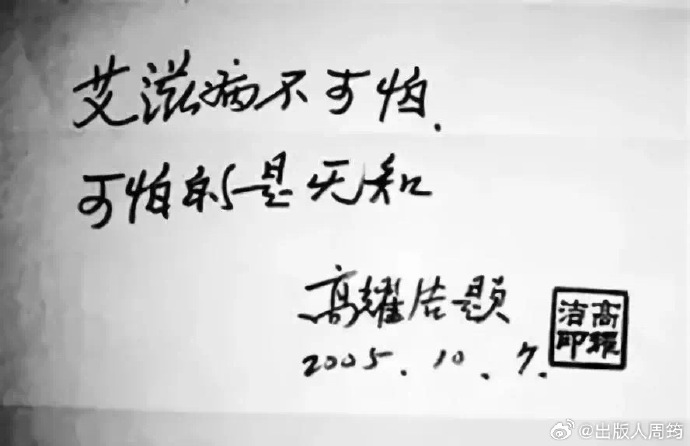 艾滋病不可怕.
可怕的是无知
高耀洁题
2005.10.7.
高耀
洁印
@出版人周筠